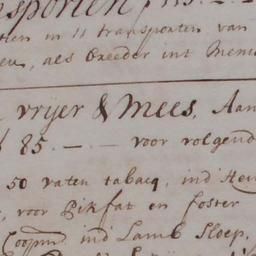 sporten
tten in 11 transporten van
eu, als breeder int Mem
vrijer & Mees, Aan
85. — — voor volgend
50 vaten tabacq, ind Hen
, voor Pikfat en foster
Coopm ind Lamb Sloep,